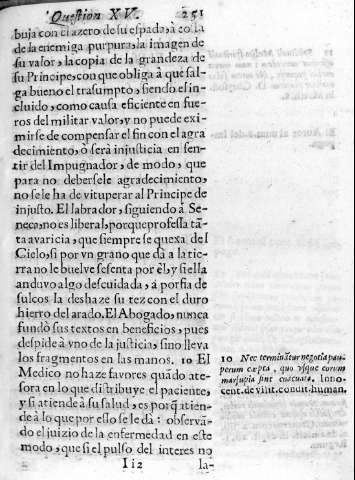 Question XV. 251
buja con el azero de su espada, à costa
de la enemiga purpura, la imagen de
su valor, la copia de la grandeza de
su Principe, con que obliga à que sal-
ga bueno el trasumpto, siendo el in-
cluido, como causa eficiente en fue-
ros del militar valor, y no puede exi-
mirse de compensar el fin con el agra
decimiento, ò serà injusticia en sen-
tir del Impugnador, de modo, que
para no debersele agradecimiento,
no se le ha de vituperar al Principe de
injusto. El labrador, siguiendo à Se-
neca, no es liberal, porque professa tã-
ta avaricia, que siempre se quexa del
Cielo, si por vn grano que dà a la tie-
rra no le buelve sesenta por èl, y si ella
anduvo algo descuidada, à porfia de
sulcos la deshaze su tez con el duro
hierro del arado. El Abogado, nunca
fundò sus textos en beneficios, pues
despide à vno de la justicia, sino lleva
los fragmentos en las manos. 10 El
Medico no haze favores quãdo ate-
sora en lo que distribuye el paciente,
y si atiende à su salud, es porq̃ atien-
de à lo que por ello se le dà: observã-
do el juizio de la enfermedad en este
modo, que si el pulso del interes no
Ii2 la-
10 Nec terminãtur negotia pau-
perum cœpta, quo vsque eorum
marsupia sint euacuata. Inno-
cent. de vilit. condit. human.